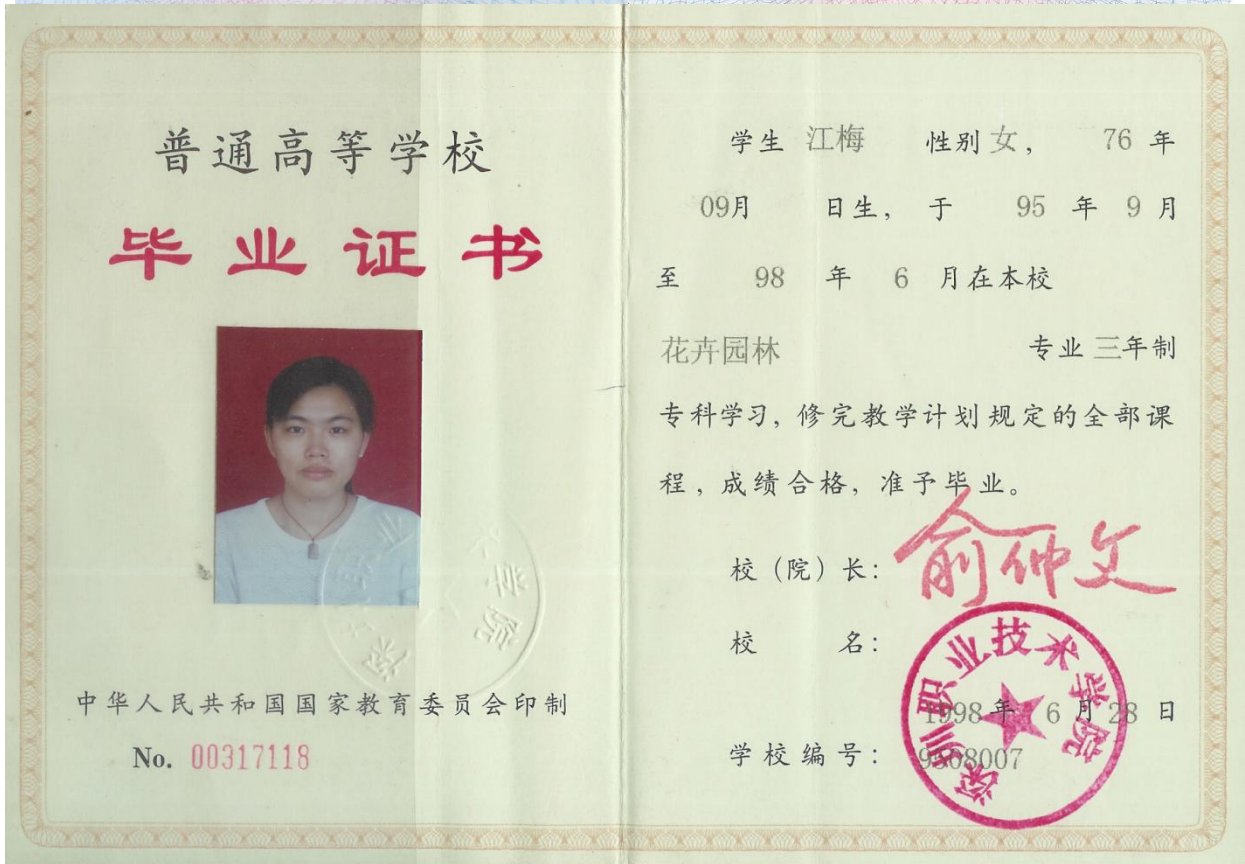 普通高等学校
毕业证书
中华人民共和国国家教育委员会印制
No. 00317118
学生 江梅 性别 女, 76 年
09月 日生, 于 95 年 9 月
至 98 年 6 月在本校
花卉园林 专业 三年制
专科学习, 修完教学计划规定的全部课
程, 成绩合格, 准予毕业。
校(院)长: 俞仲文
校 名:
深圳职业技术学院
1998 年 6 月 28 日
学校编号: 9508007